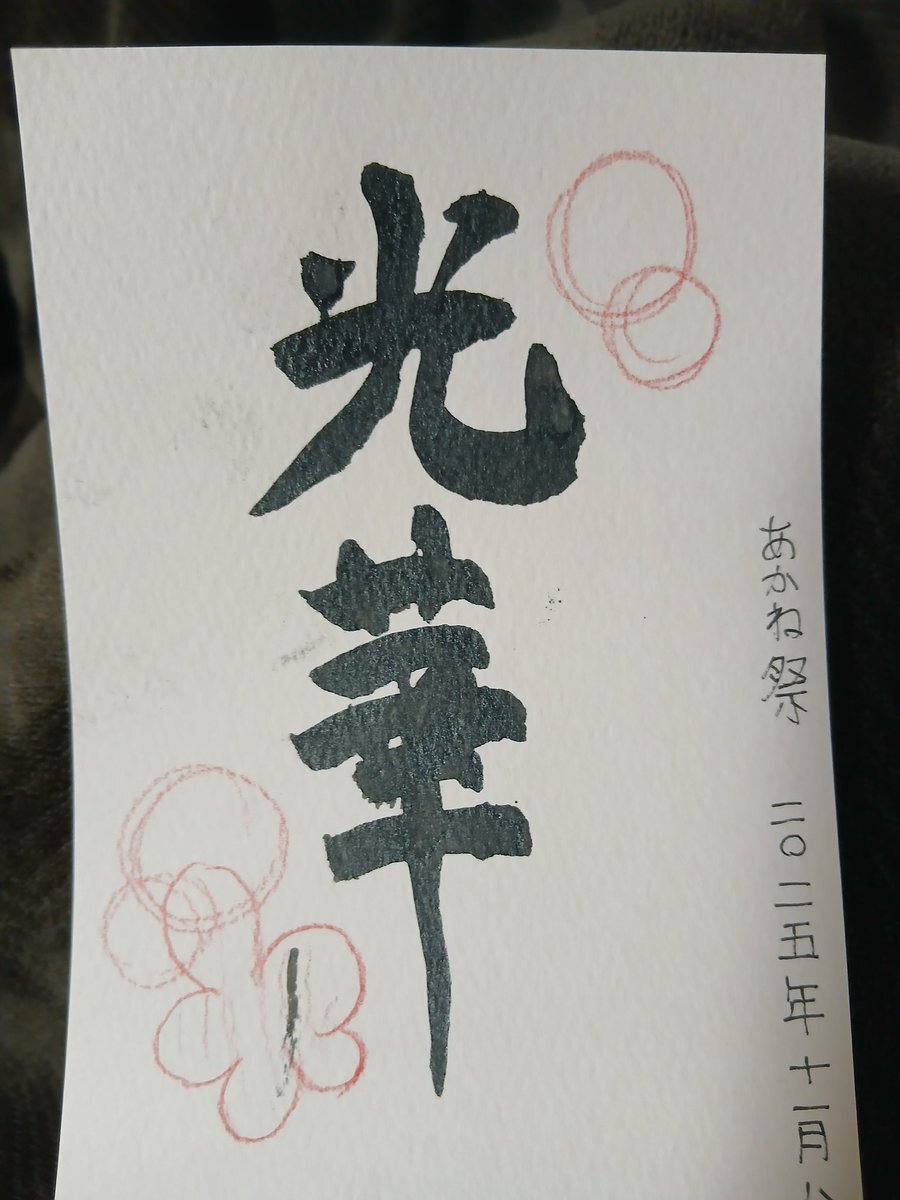 光華
あかね祭 二〇二五年十一月